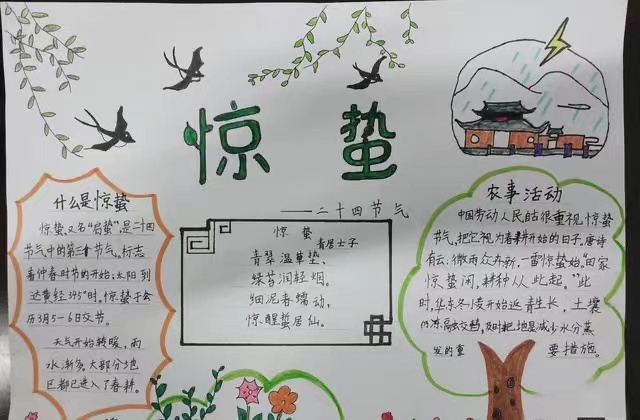 惊蛰
——二十四节气
什么是惊蛰
惊蛰,又名“启蛰”是二十四
节气中的第三个节气,标志
着仲春时节的开始;太阳到
达黄经345°时,惊蛰于公
历3月5-6日交节。
天气开始转暖,雨
水渐多,大部分地
区都已进入了春耕。
惊 蛰
青居士子
青翠温草垫,
绿苔润轻烟。
细泥春蠕动,
惊醒蛰居仙。
农事活动
中国劳动人民自古很重视惊蛰
节气,把它视为春耕开始的日子,唐诗
有云:微雨众卉新,一雷惊蛰始,“田家
惊蛰闲,耕种从此起。”此
时,华东冬小麦开始返青生长,土壤
仍冻融交替,及时耙地是减少水分蒸
发的重 要措施。